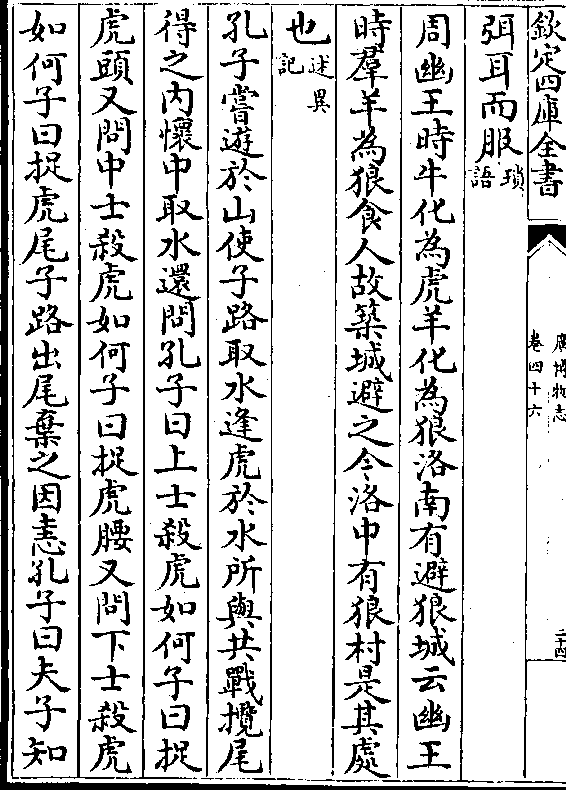 欽定四庫全書
廣博物志
卷四十六
二十四
弭耳而服瑣語
周幽王時牛化為虎羊化為狼洛南有避狼城云幽王
時羣羊為狼食人故築城避之今洛中有狼村是其處
也述異記
孔子嘗遊於山使子路取水逢虎於水所與共戰攬尾
得之内懷中取水還問孔子曰上士殺虎如何子曰捉
虎頭又問中士殺虎如何子曰捉虎腰又問下士殺虎
如何子曰捉虎尾子路出尾棄之因恚孔子曰夫子知